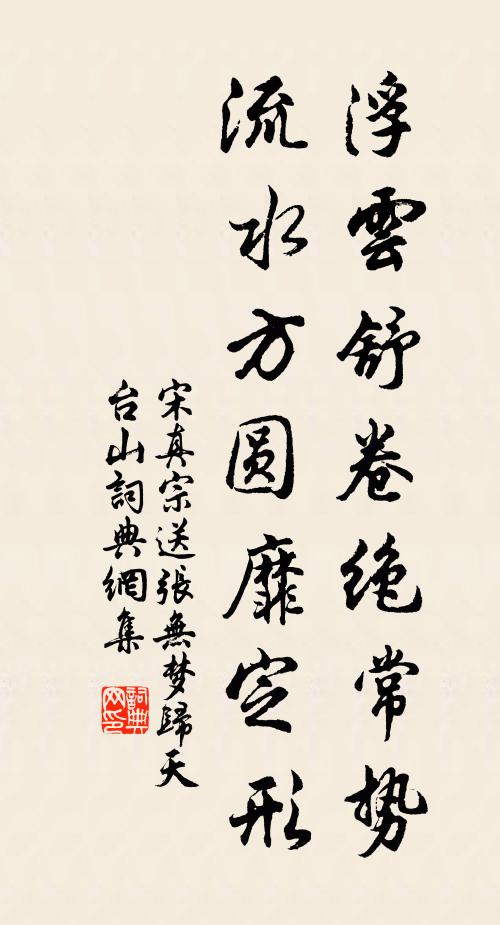 浮雲舒卷绝常勢
流水方圆靡定形
宋真宗送張無梦歸天
台山詞典網集
詞典网印